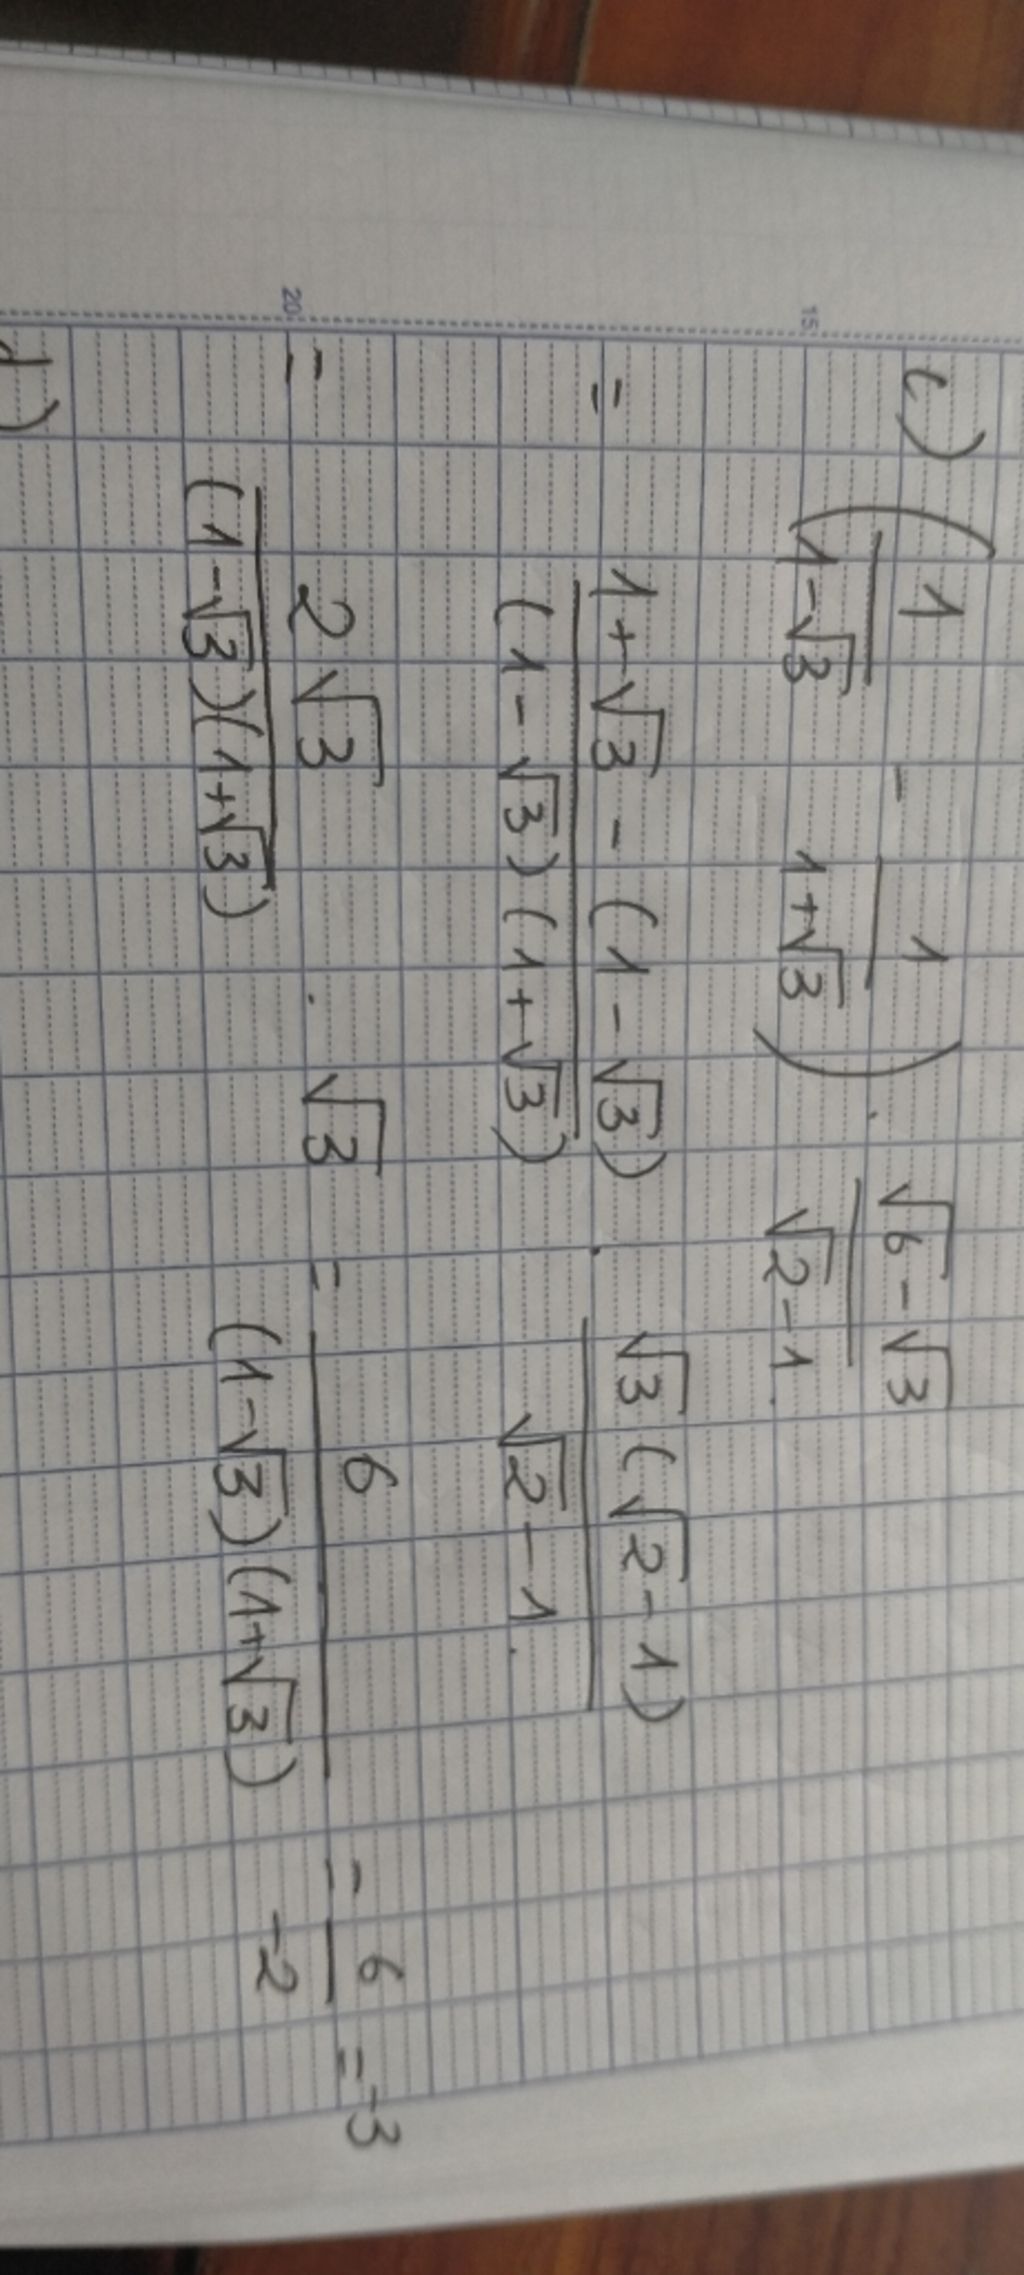 c) (1/(1-√3) - 1/(1+√3)) . (√6-√3)/(√2-1).
= (1+√3-(1-√3))/((1-√3)(1+√3)) . (√3(√2-1))/(√2-1).
= 2√3/((1-√3)(1+√3)) . √3 = 6/((1-√3)(1+√3)) = 6/-2 = -3
d)
15
20